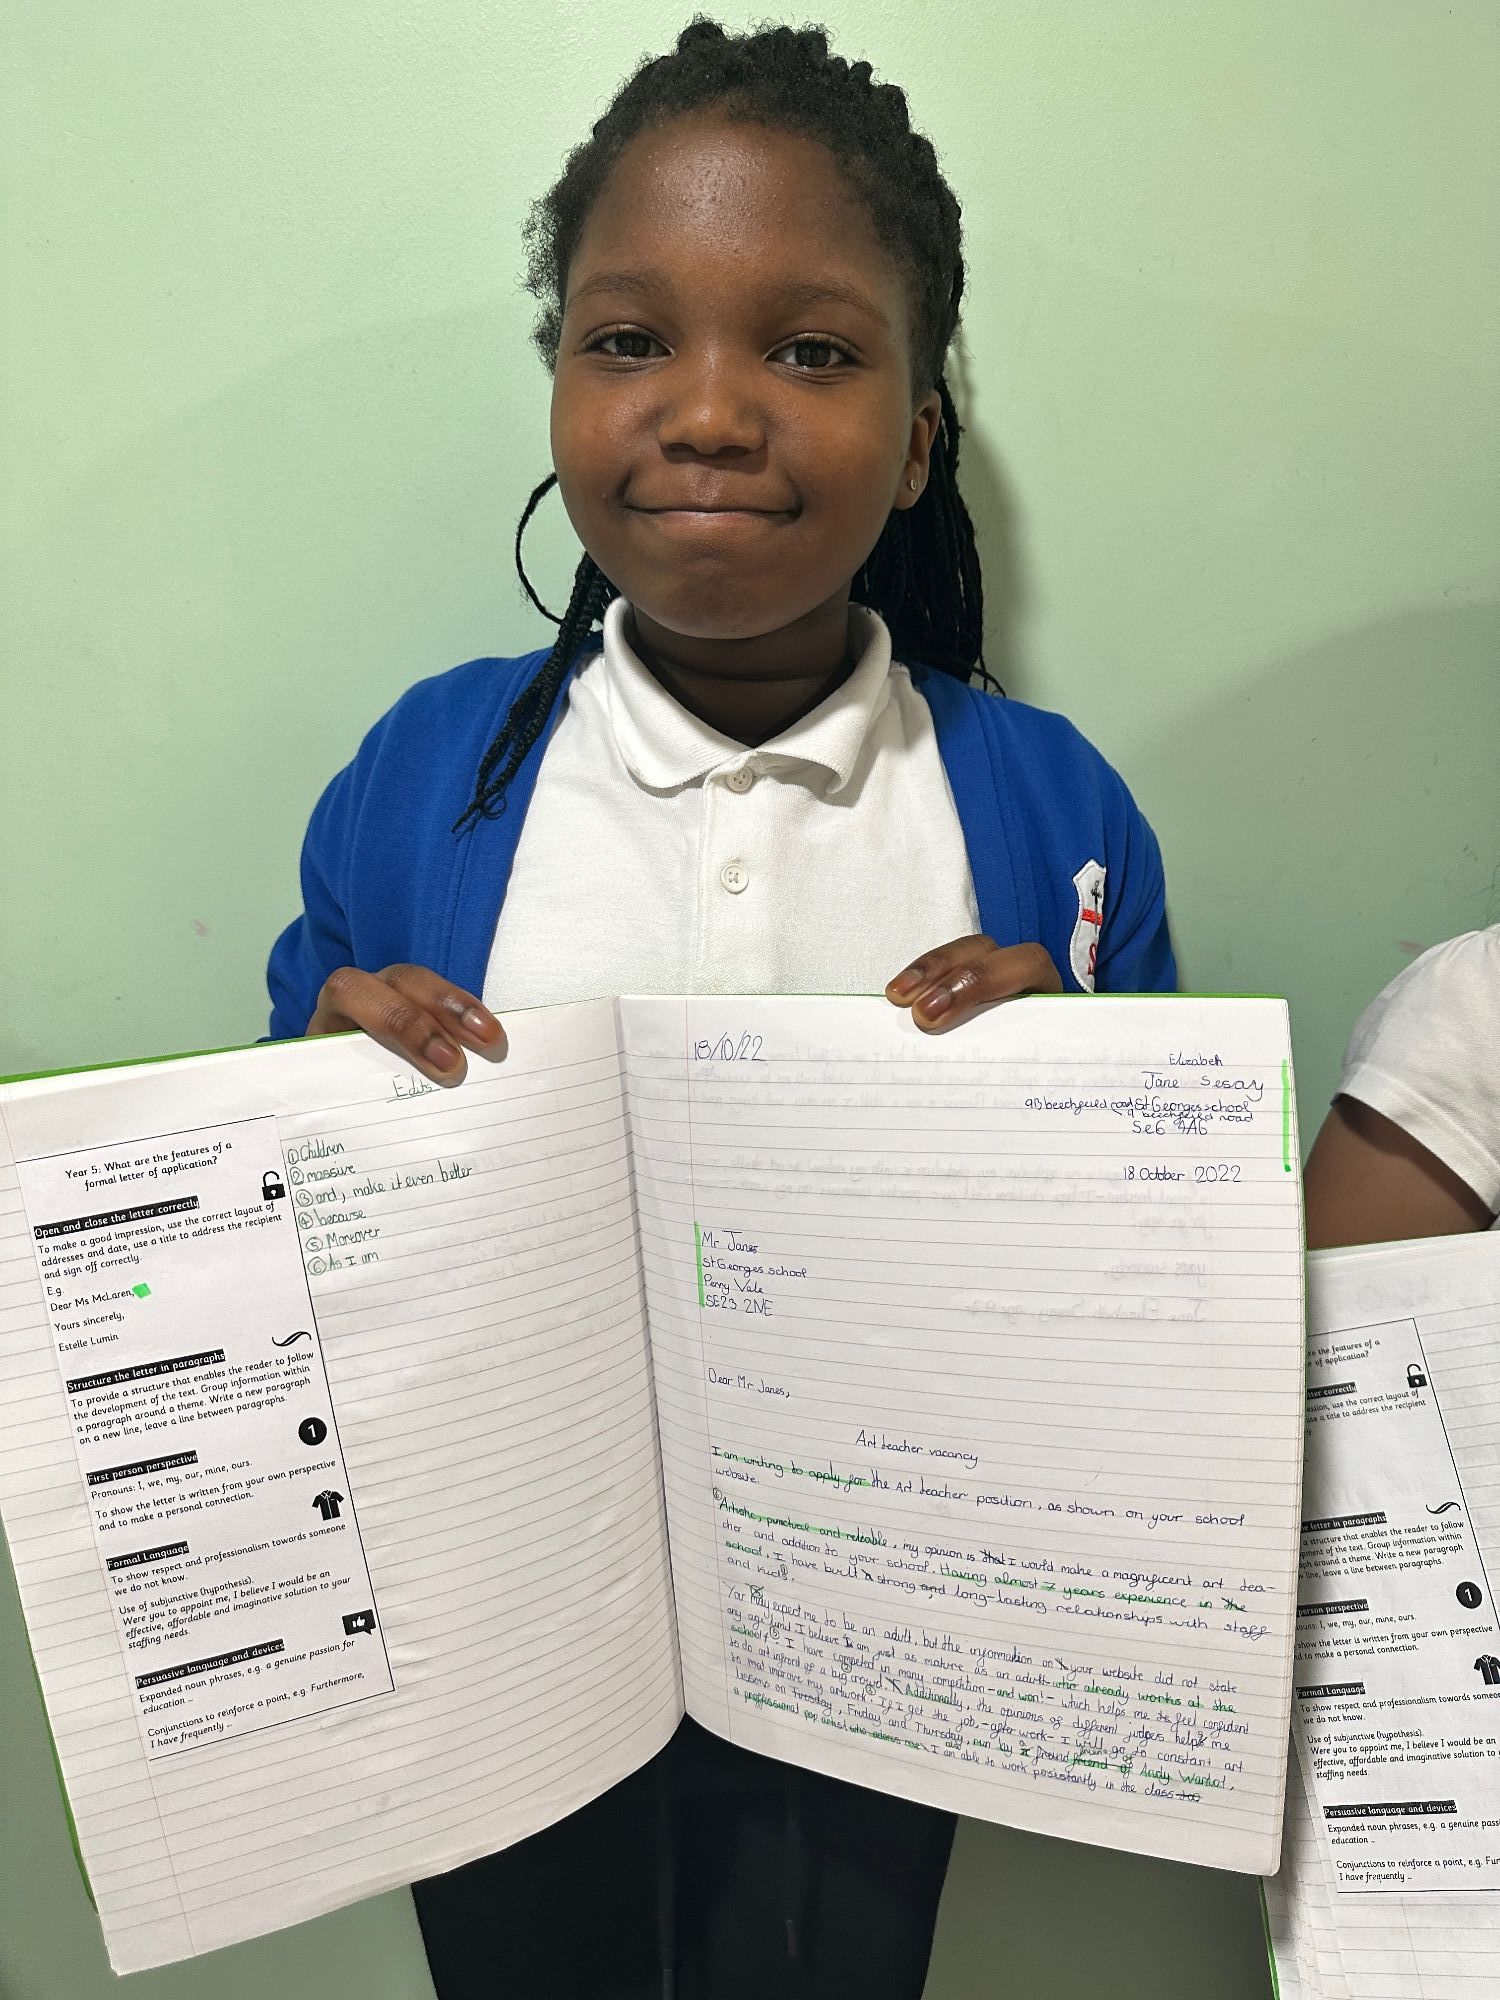 Edits
Year 5: What are the features of a
formal letter of application?
Open and close the letter correctly
To make a good impression, use the correct layout of
addresses and date, use a title to address the recipient
and sign off correctly.
E.g.
Dear Ms McLaren,
Yours sincerely,
Estelle Lumin
Structure the letter in paragraphs
To provide a structure that enables the reader to follow
the development of the text. Group information within
a paragraph around a theme. Write a new paragraph
on a new line, leave a line between paragraphs.
1
First person perspective
Pronouns: I, we, my, our, mine, ours.
To show the letter is written from your own perspective
and to make a personal connection.
Formal Language
To show respect and professionalism towards someone
we do not know.
Use of subjunctive (hypothesis).
Were you to appoint me, I believe I would be an
effective, affordable and imaginative solution to your
staffing needs.
Persuasive language and devices
Expanded noun phrases, e.g. a genuine passion for
education ...
Conjunctions to reinforce a point, e.g. Furthermore,
I have frequently ...
① Children
② massive
③ and, make it even better
④ because
⑤ Moreover
⑥ As I am
18/10/22
Elizabeth
Jane Sesay
9B beechfield road St Georges school
9 beechfield road
Se6 4A6
18 October 2022
Mr Janes
St Georges school
Perry Vale
SE23 2NE
Dear Mr Janes,
Art teacher vacancy
I am writing to apply for the Art teacher position, as shown on your school
website.
⑥ Artistic, punctual and releable, my opinion is that I would make a magnificent art tea-
cher and addition to your school. Having almost 7 years experience in the
school, I have built a strong and long-lasting relationships with staff
and kids①.
You may expect me to be an adult, but the information on your website did not state
any age and I believe I am just as mature as an adult who already works at the
school! ⑤ I have competed in many competition - and won! - which helps me feel confident
to do art infront of a big② crowd. Additionally, the opinions of different judges helps me
to improve my artwork. If I get the job, - after work - I will go to constant art
lessons on Tuesday, Friday and Thursday, run by a friend of Andy Warhol,
a proffessional pop artist who adores me I am able to work persistantly in the class
re the features of a
of application?
tter correctly
ession, use the correct layout of
use a title to address the recipient
he letter in paragraphs
a structure that enables the reader to follow
pment of the text. Group information within
ph around a theme. Write a new paragraph
line, leave a line between paragraphs.
1
person perspective
ouns: I, we, my, our, mine, ours.
show the letter is written from your own perspective
d to make a personal connection.
Formal Language
To show respect and professionalism towards someo
we do not know.
Use of subjunctive (hypothesis).
Were you to appoint me, I believe I would be an
effective, affordable and imaginative solution to
staffing needs.
Persuasive language and devices
Expanded noun phrases, e.g. a genuine pass
education ...
Conjunctions to reinforce a point, e.g. Fur
I have frequently ...